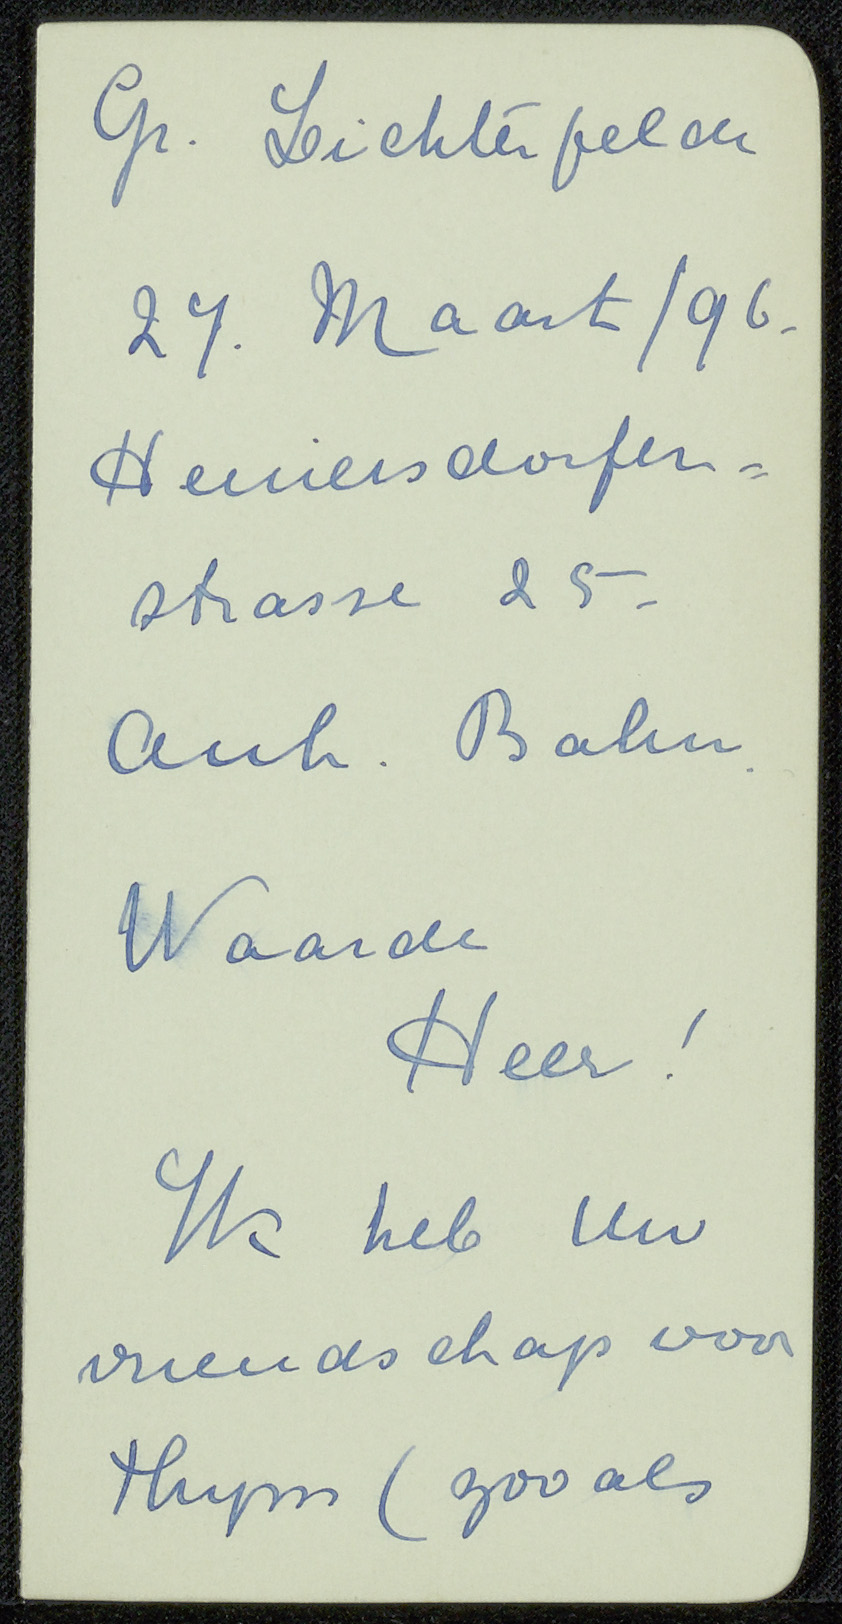 Gr. Lichterfelde
27. Maart/96.
Heinersdorfer=
strasse 25.
Anh. Bahn.
Waarde
Heer!
Ik heb Uw
vriendschap voor
Thijm (zooals